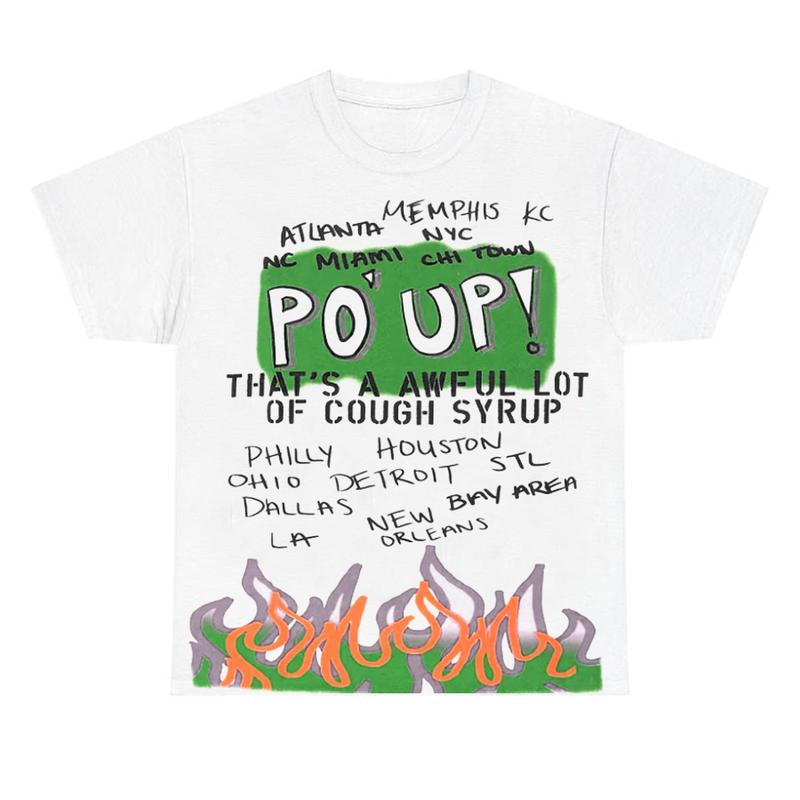 MEMPHIS KC
ATLANTA NYC
NC MIAMI CHI TOWN
PO' UP!
THAT'S A AWFUL LOT
OF COUGH SYRUP
PHILLY HOUSTON
OHIO DETROIT STL
DALLAS BAY AREA
NEW
LA ORLEANS